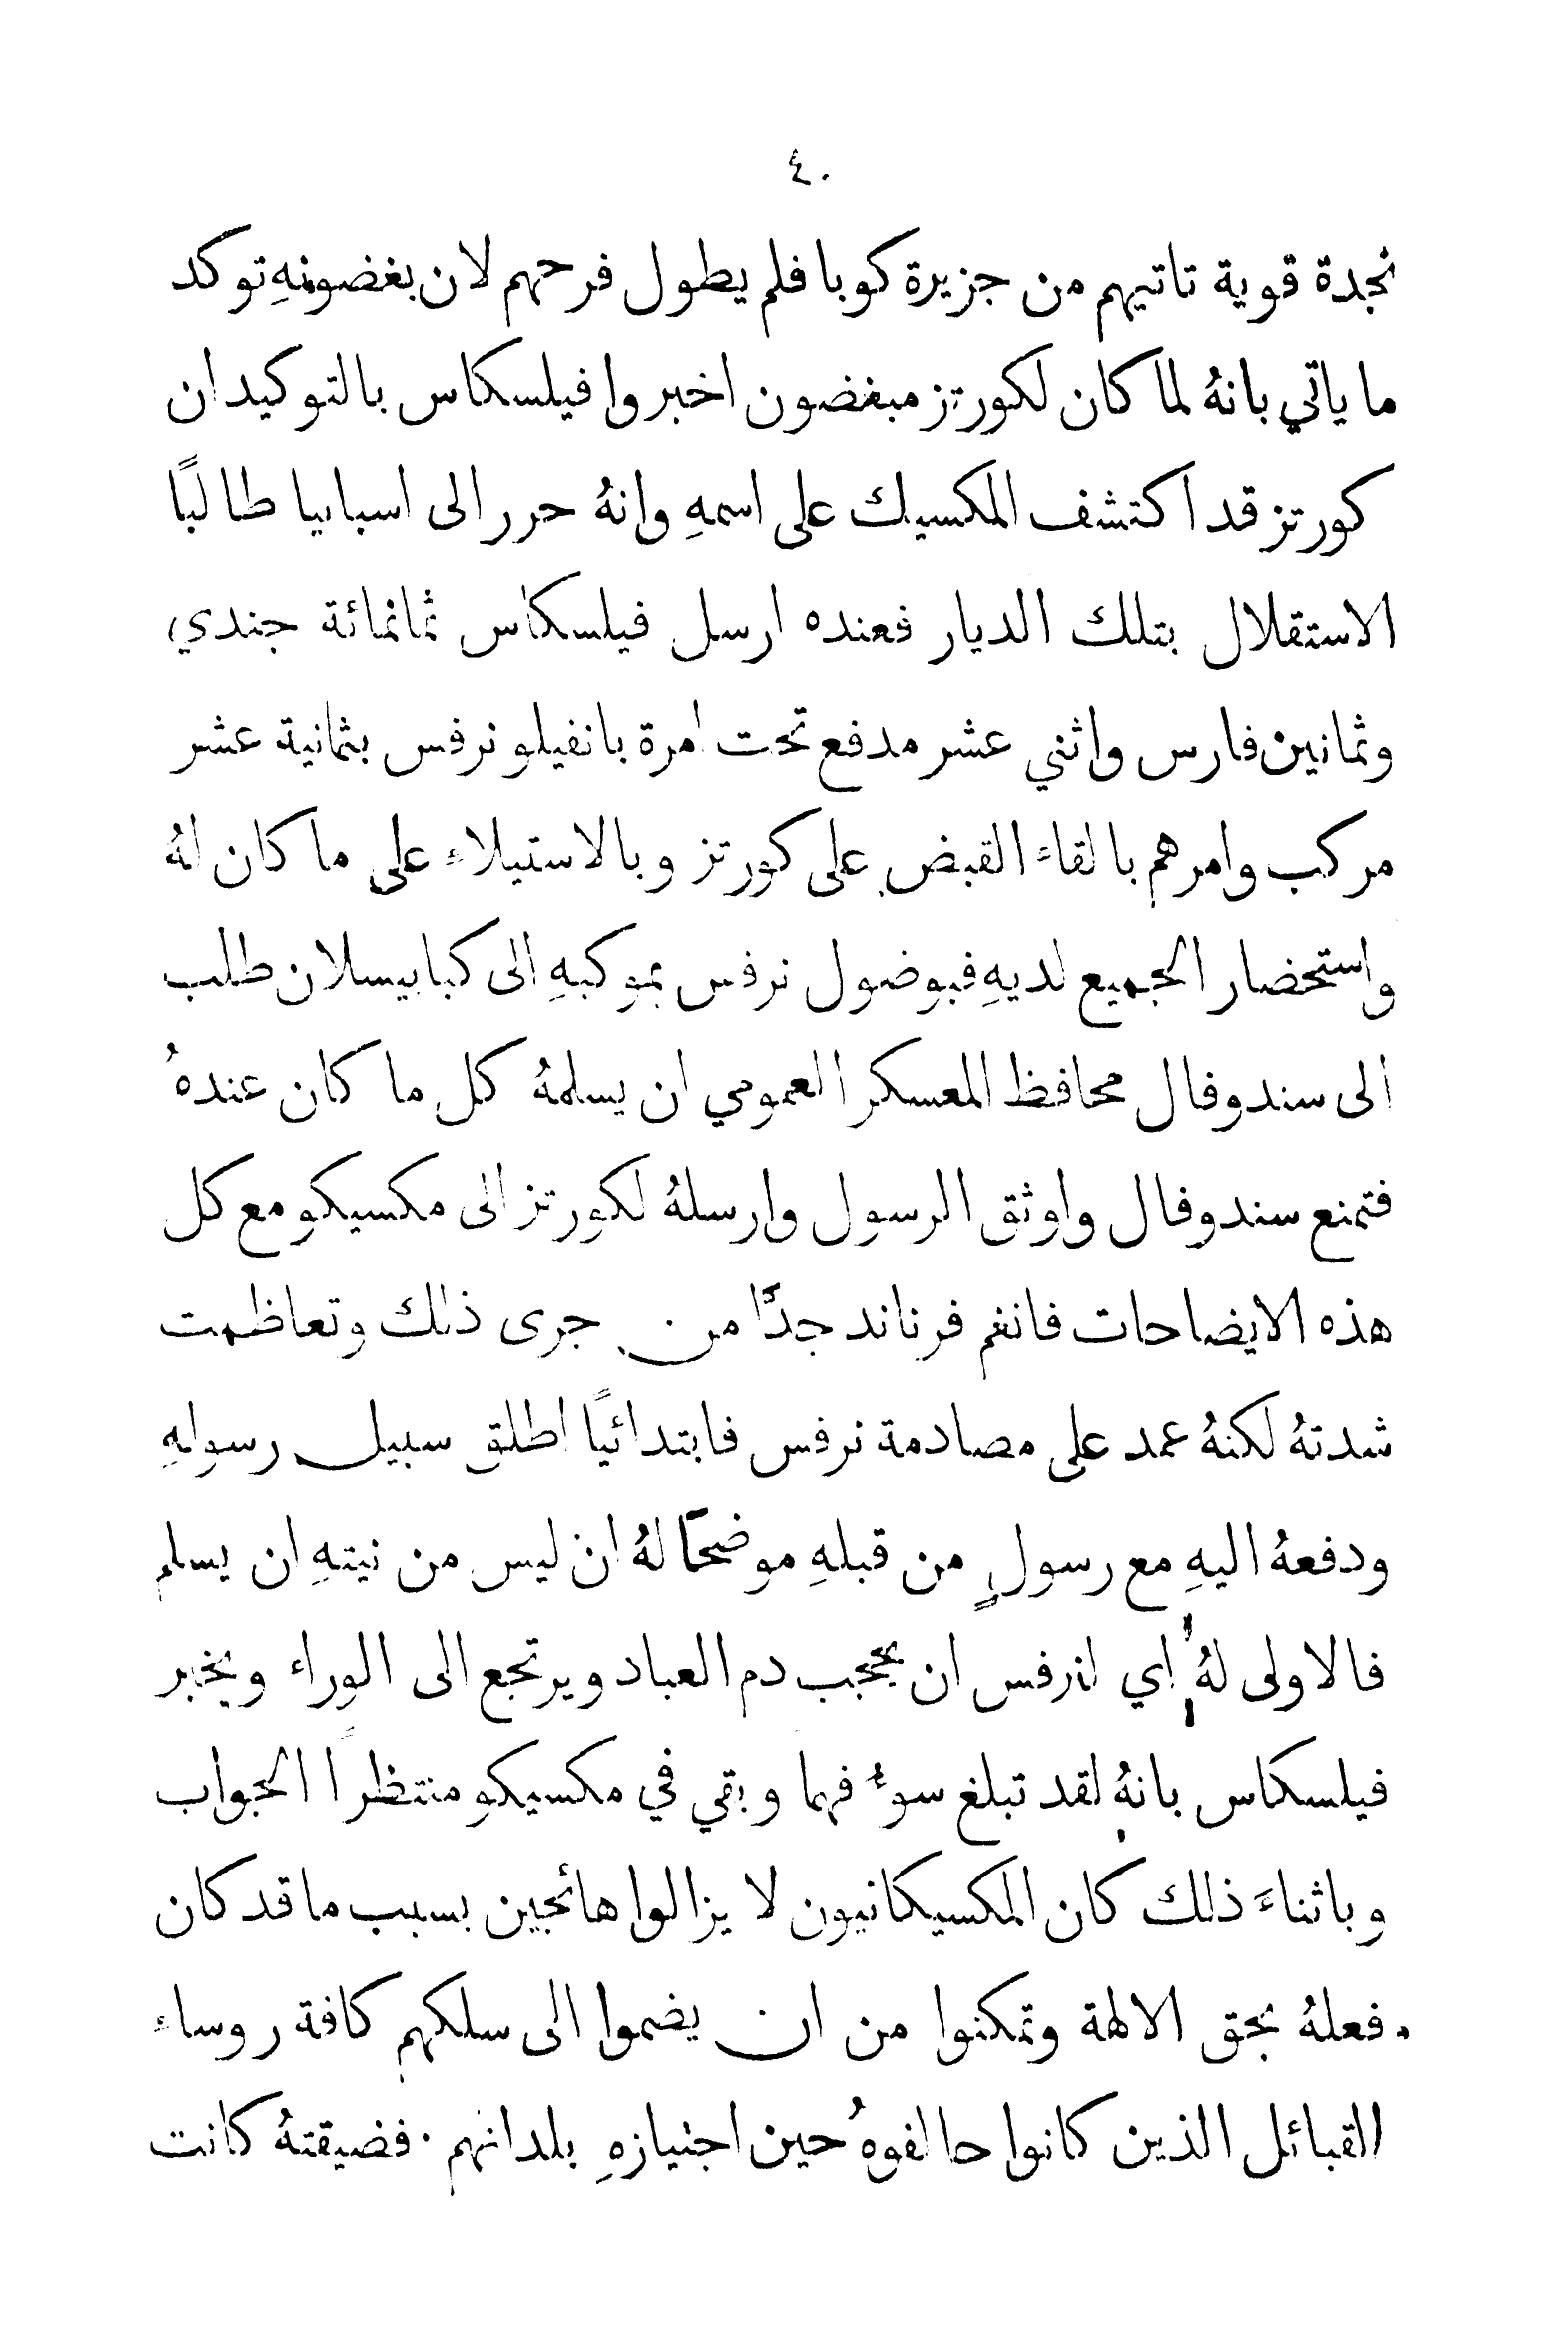 ٤٠
نجدة قوية تاتيهم من جزيرة كوبا فلم يطول فرحهم لان بغضونهِ توكد
ما ياتي بانهُ لما كان لكورتز مبغضون اخبروا فيلسكاس بالتوكيد ان
كورتز قد اكتشف المكسيك على اسمهِ وانهُ حرر الى اسبانيا طالبًا
الاستقلال بتلك الديار فعنده ارسل فيلسكاس ثمانمائة جندي
وثمانين فارس واثني عشر مدفع تحت امرة بانفيلو نرفس بثمانية عشر
مركب وامرهم بالقاءَ القبض على كورتز وبالاستيلاء على ما كان لهُ
واستحضار الجميع لديهِ فبوضول نرفس بموكبهِ الى كبابيسلان طلب
الى سندوفال محافظ المعسكر العمومي ان يسلمهُ كل ما كان عندهُ
فتمنع سندوفال واوثق الرسول وارسلهُ لكورتز الى مكسيكو مع كل
هذه الايضاحات فانغم فرناند جدًّا من جرى ذلك وتعاظمت
شدتهُ لكنهُ عمد على مصادمة نرفس فابتدائيًا اطلق سبيل رسولهِ
ودفعهُ اليهِ مع رسولٍ من قبلهِ موضحًا لهُ ان ليس من نيتهِ ان يسلم
فالاولى لهُ اي لنرفس ان يحجب دم العباد ويرتجع الى الوراء ويخبر
فيلسكاس بانهُ لقد تبلغ سوءُ فهما وبقي في مكسيكو منتظرًا الجواب
وباثناءَ ذلك كان المكسيكانيون لا يزالوا هائجين بسبب ما قد كان
فعلهُ بحق الالهة وتمكنوا من ان يضموا الى سلكهم كافة روساء
القبائل الذين كانوا حالفوهُ حين اجتيازهِ بلدانهم ٠ فضيقتهُ كانت